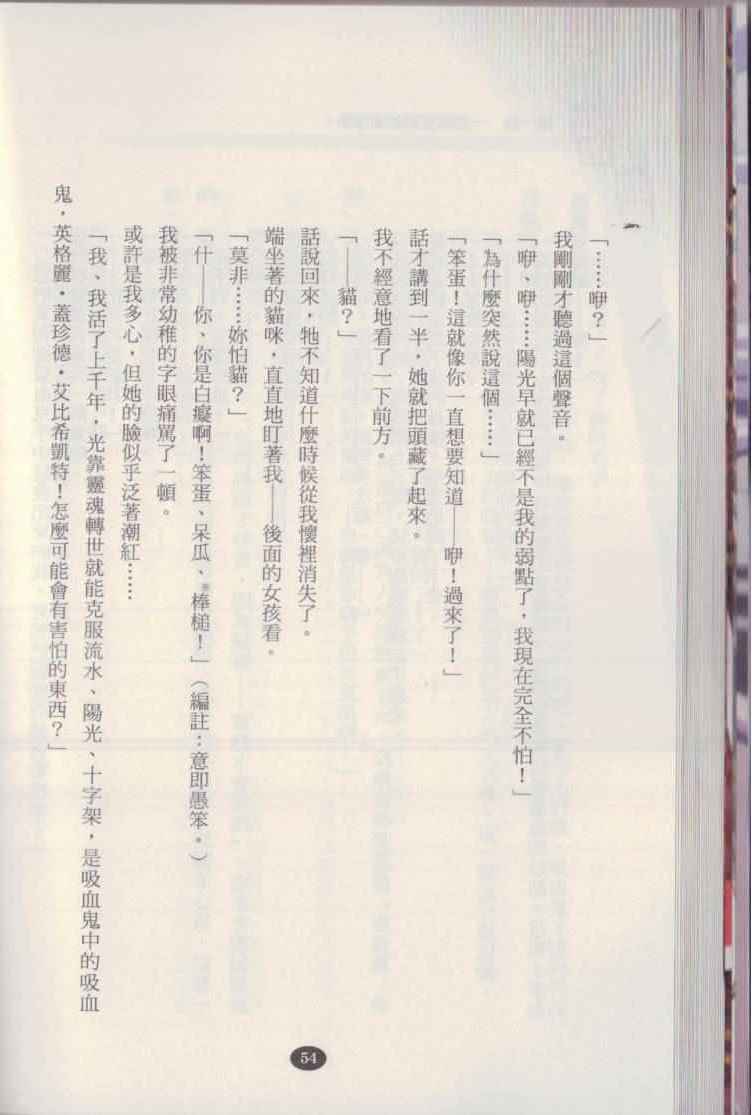 「……咿？」
我剛剛才聽過這個聲音。
「咿、咿……陽光早就已經不是我的弱點了，我現在完全不怕！」
「為什麼突然說這個……」
「笨蛋！這就像你一直想要知道——咿！過來了！」
話才講到一半，她就把頭藏了起來。
我不經意地看了一下前方。
「——貓？」
話說回來，牠不知道什麼時候從我懷裡消失了。
端坐著的貓咪，直直地盯著我——後面的女孩看。
「莫非……妳怕貓？」
「什——你、你是白癡啊！笨蛋、呆瓜、棒槌！」（編註：意即愚笨。）
我被非常幼稚的字眼痛罵了一頓。
或許是我多心，但她的臉似乎泛著潮紅……
「我、我活了上千年，光靠靈魂轉世就能克服流水、陽光、十字架，是吸血鬼中的吸血
鬼，英格麗・蓋珍德・艾比希凱特！怎麼可能會有害怕的東西？」
54